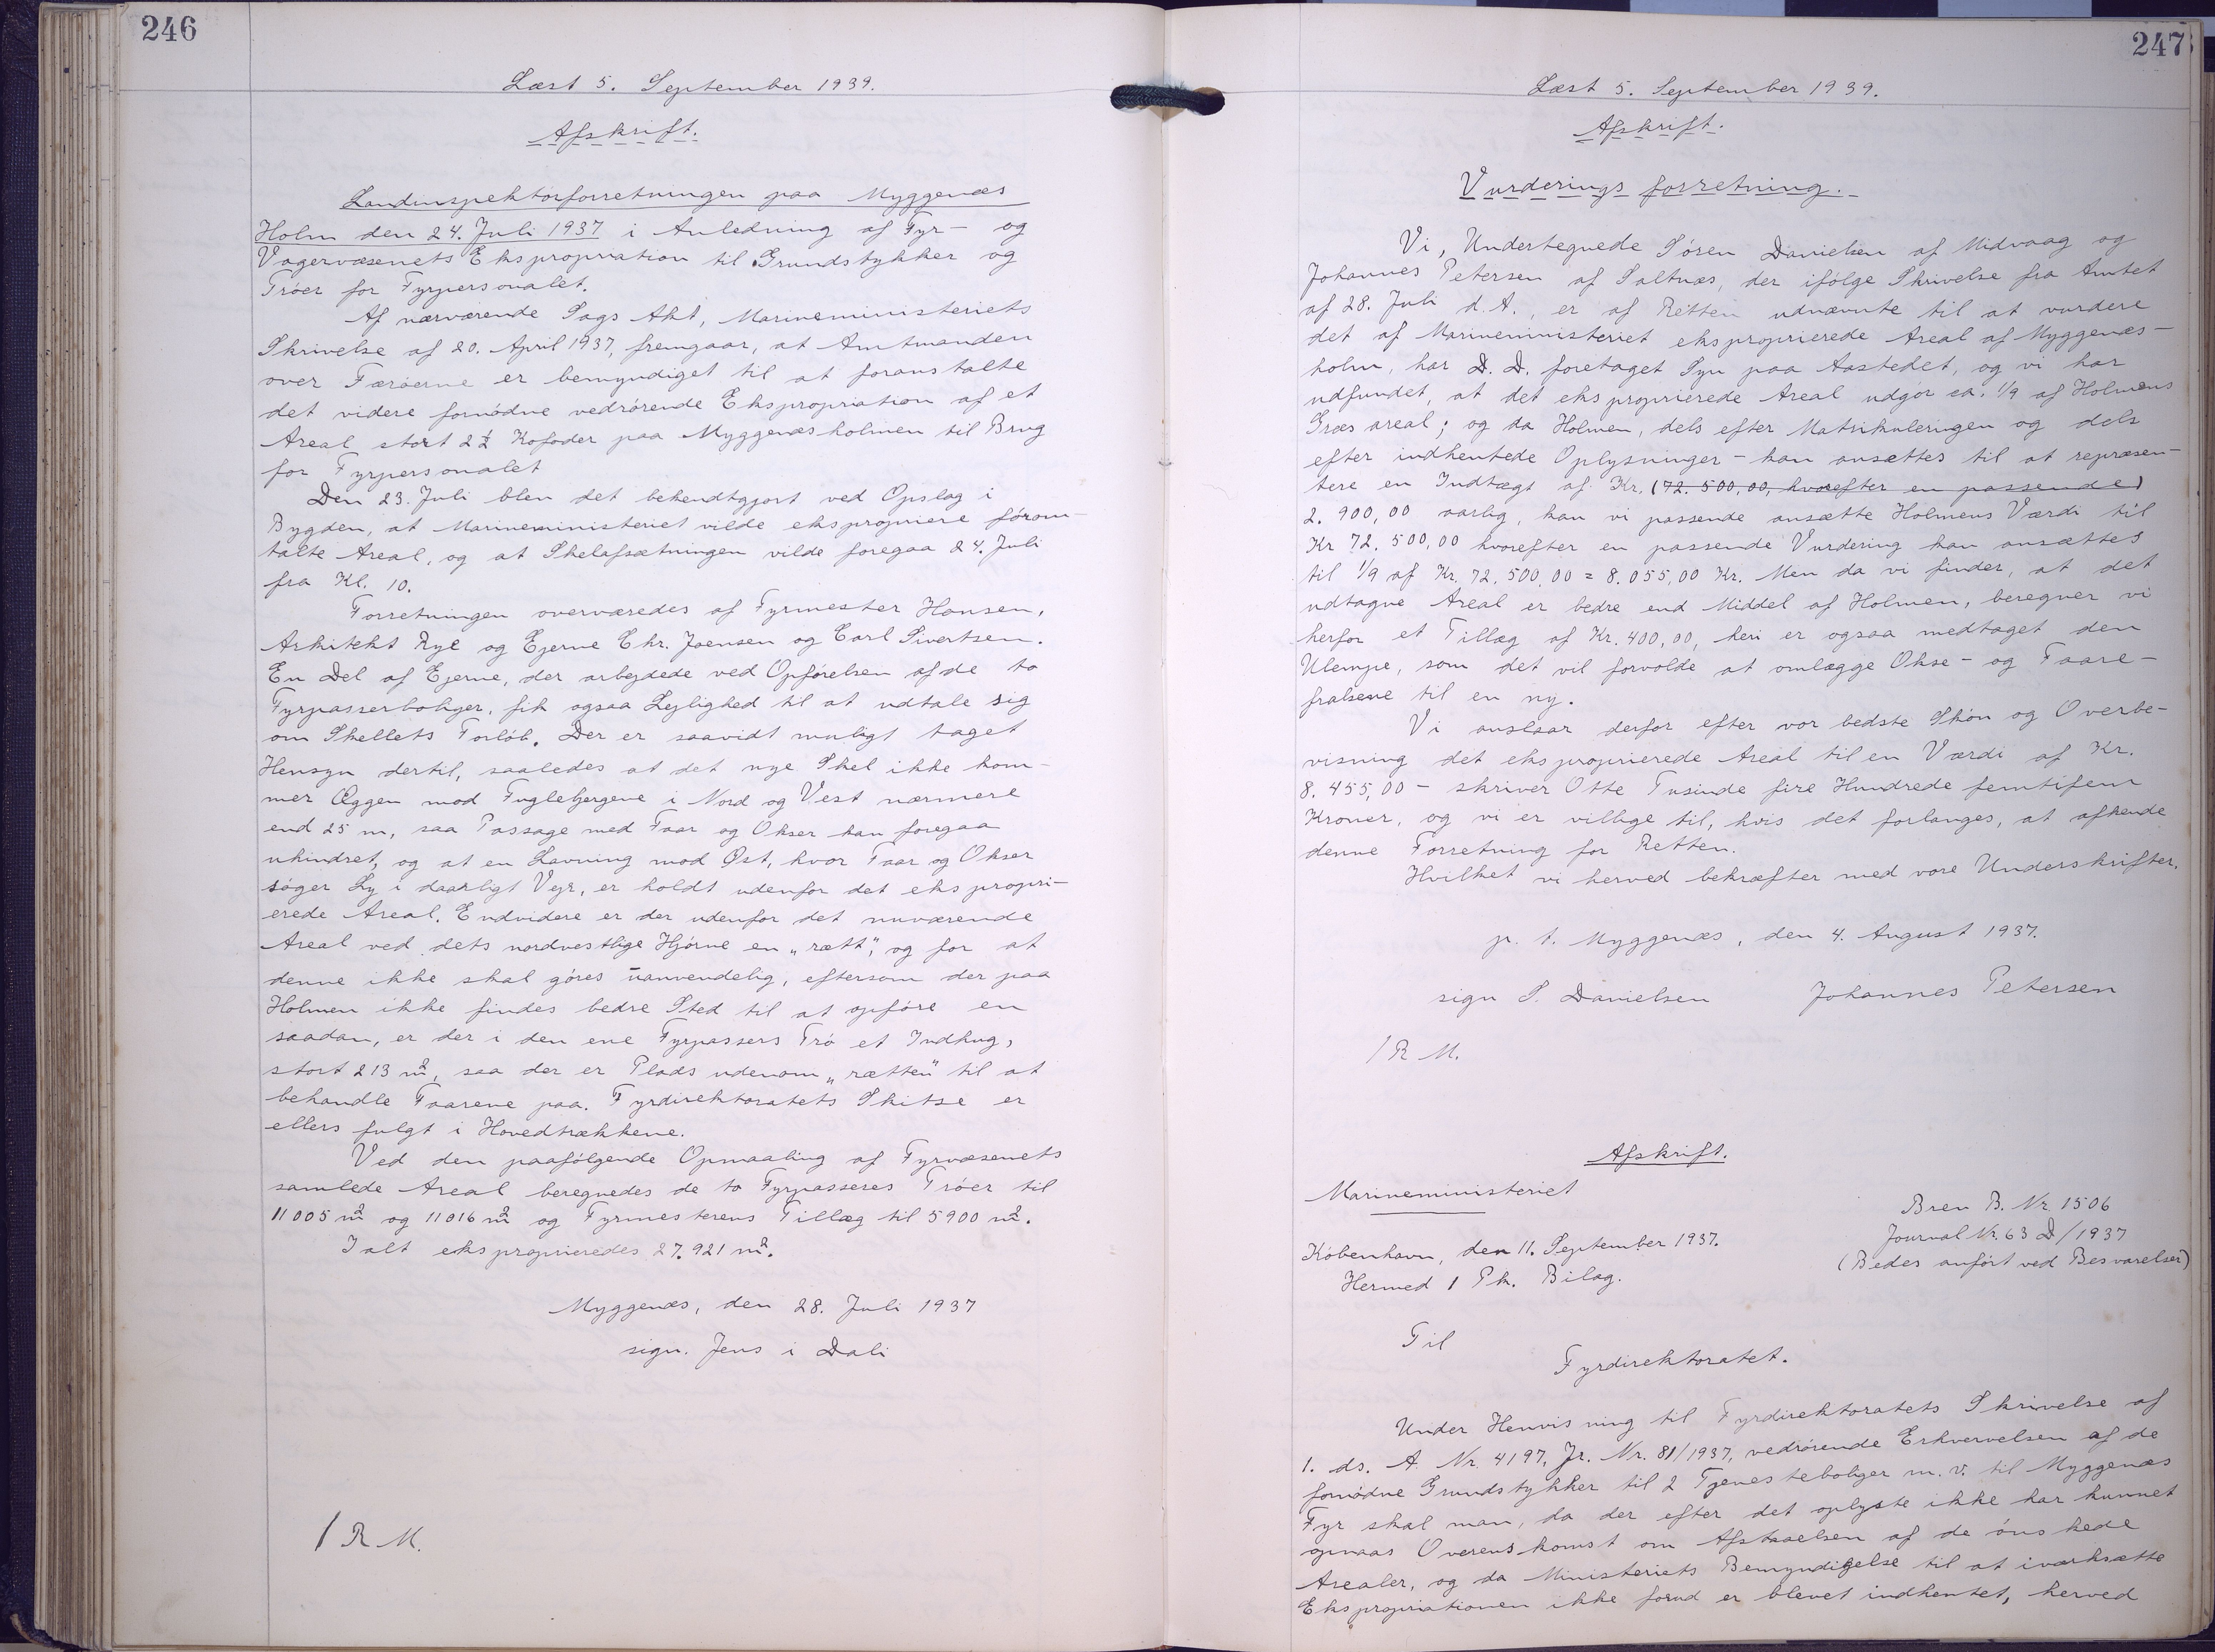 246
Læst 5. September 1939.
Afskrift.
Landinspektørforretningen paa Myggenæs
Holm den 24. Juli 1937 i Anledning af Fyr- og
Vagervæsenets Ekspropriation til Grundstykker og
Trøer for Fyrpersonalet.
Af nærværende Sags Akt, Marineministeriets
Skrivelse af 20. April 1937, fremgaar, at Amtmanden
over Færøerne er bemyndiget til at foranstalte
det videre fornødne vedrørende Ekspropriation af et
Areal stort 2½ Kofoder paa Myggenæsholmen til Brug
for Fyrpersonalet
Den 23. Juli blev det bekendtgjort ved Opslag i
Bygden, at Marineministeriet vilde ekspropriere førom-
talte Areal, og at Skelafsætningen vilde foregaa 24. Juli
fra Kl. 10.
Forretningen overværedes af Fyrmester Hansen,
Arkitekt Rye og Ejerne Chr. Joensen og Carl Sivertsen.
En Del af Ejerne, der arbejdede ved Opførelsen af de to
Fyrpasserboliger, fik ogsaa Lejlighed til at udtale sig
om Skellets Forløb. Der er saavidt muligt taget
Hensyn dertil, saaledes at det nye Skel ikke kom-
mer Æggen mod Fuglebjergene i Nord og Vest nærmere
end 25 m, saa Passage med Faar og Okser kan foregaa
uhindret, og at en Lavning mod Øst, hvor Faar og Okser
søger Ly i daarligt Vejr, er holdt udenfor det ekspropri-
erede Areal. Endvidere er der udenfor det nuværende
Areal ved dets nordvestlige Hjørne en „rætt", og for at
denne ikke skal gøres uanvendelig, eftersom der paa
Holmen ikke findes bedre Sted til at opføre en
saadan, er der i den ene Fyrpassers Trø et Indhug,
stort 213 m², saa der er Plads udenom „rætten" til at
behandle Faarene paa. Fyrdirektoratets Skitse er
ellers fulgt i Hovedtrækkene.
Ved den paafølgende Opmaaling af Fyrvæsenets
samlede Areal beregnedes de to Fyrpasseres Trøer til
11005 m² og 11016 m² og Fyrmesterens Tillæg til 5900 m².
I alt eksproprieredes 27.921 m².
Myggenæs, den 28. Juli 1937
sign. Jens i Dali
/ R M.
247
Læst 5. September 1939.
Afskrift.
Vurderings forretning.
Vi, Undertegnede Søren Danielsen af Midvaag og
Johannes Petersen af Saltnæs, der ifølge Skrivelse fra Amtet
af 28. Juli d. A., er af Retten udnævnte til at vurdere
det af Marineministeriet eksproprierede Areal af Myggenæs-
holm, har D. D. foretaget Syn paa Aastedet, og vi har
udfundet, at det eksproprierede Areal udgør ca. 1/9 af Holmens
Græsareal; og da Holmen, dels efter Matrikuleringen og dels
efter indhentede Oplysninger - kan ansættes til at repræsen-
tere en Indtægt af Kr. (72.500,00, hvorefter en passende)
2.900,00 aarlig, kan vi passende ansætte Holmens Værdi til
Kr 72.500,00 hvorefter en passende Vurdering kan ansættes
til 1/9 af Kr. 72.500,00 = 8.055,00 Kr. Men da vi finder, at det
udtagne Areal er bedre end Middel af Holmen, beregner vi
herfor et Tillæg af Kr. 400,00, heri er ogsaa medtaget den
Ulempe, som det vil forvolde at omlægge Okse- og Faare-
fralsene til en ny.
Vi anslaar derfor efter vor bedste Skøn og Overbe-
visning det eksproprierede Areal til en Værdi af Kr.
8.455,00 - skriver Otte Tusinde fire Hundrede femtifem
Kroner, og vi er villige til, hvis det forlanges, at afhende
denne Forretning for Retten.
Hvilket vi herved bekræfter med vore Underskrifter.
p. t. Myggenæs, den 4. August 1937.
sign S. Danielsen Johannes Petersen
/ R M.
Afskrift.
Marineministeriet
Brev B. Nr 1506
Journal Nr. 63 D/1937
København, den 11. September 1937.
(Bedes anført ved Besvarelser)
Hermed 1 Pk. Bilag.
Til
Fyrdirektoratet.
Under Henvisning til Fyrdirektoratets Skrivelse af
1. ds. A. Nr. 4197, Jr. Nr. 81/1937, vedrørende Erhvervelsen af de
fornødne Grundstykker til 2 Tjenesteboliger m. v. til Myggenæs
Fyr skal man, da der efter det oplyste ikke har kunnet
opnaas Overenskomst om Afstaaelsen af de ønskede
Arealer, og da Ministeriets Bemyndigelse til at iværksætte
Ekspropriationen ikke forud er blevet indhentet, herved